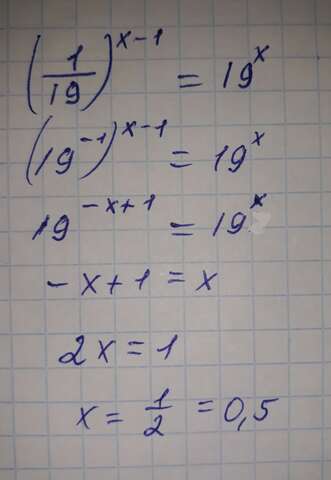 (1/19)^(x-1) = 19^x
(19^-1)^(x-1) = 19^x
19^(-x+1) = 19^x
-x+1 = x
2x = 1
x = 1/2 = 0,5